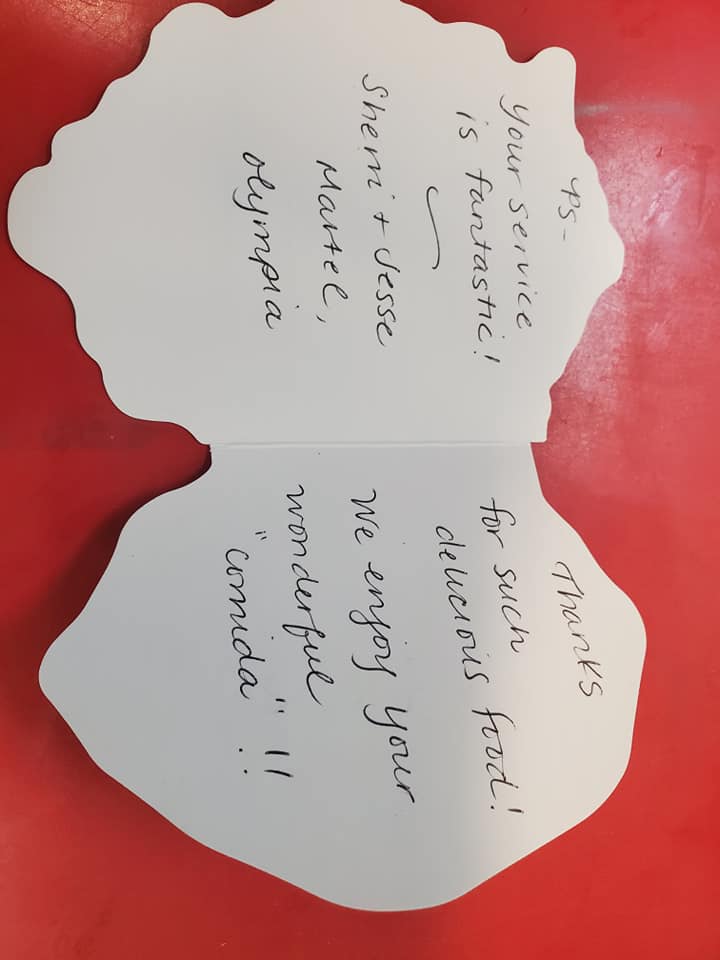 Thanks
for such
delicious food!
We enjoy your
wonderful
"comida"!!
PS-
your service
is fantastic!
Sherri + Jesse
Martel,
Olympia